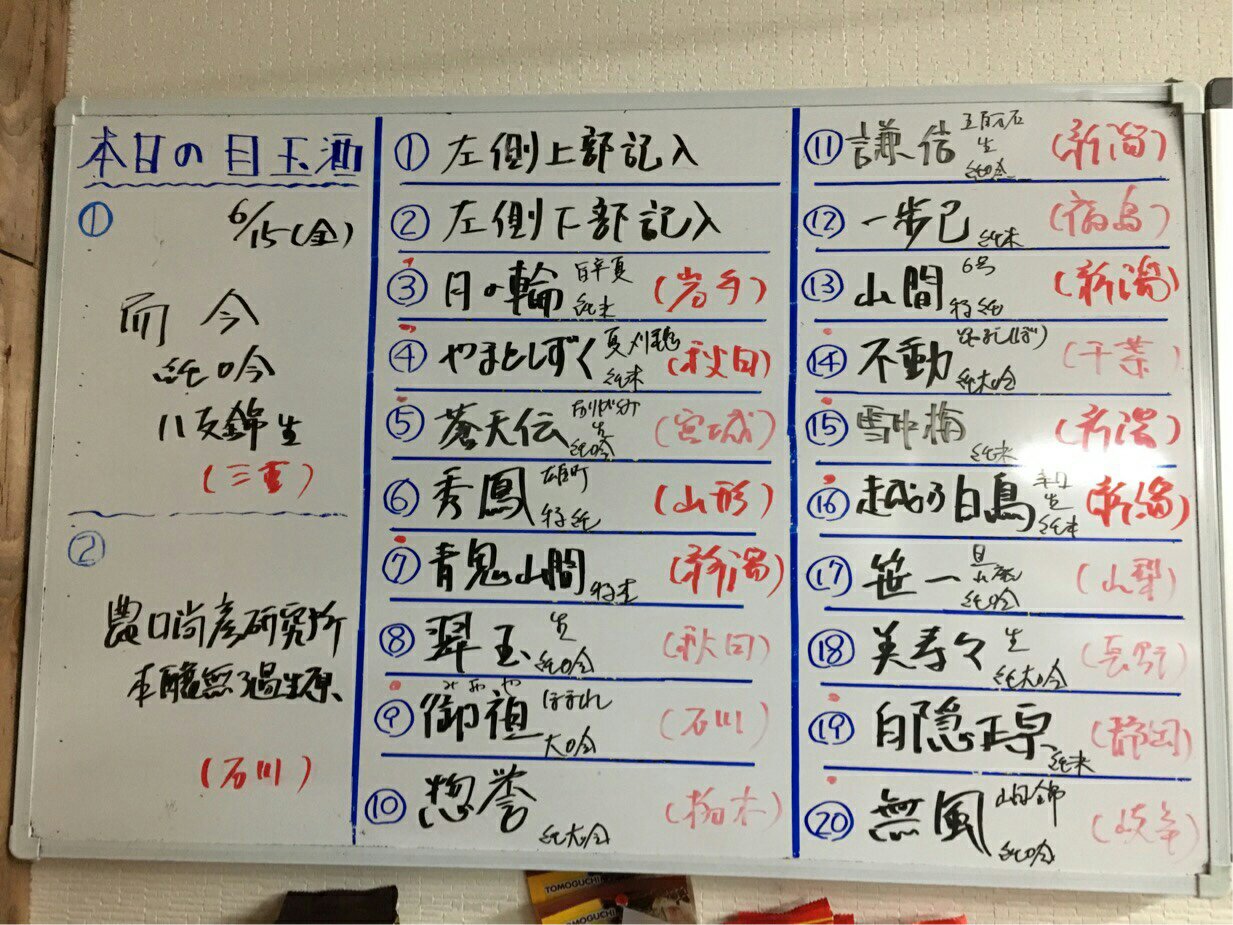 本日の目玉酒
① 6/15(金)
而今
純吟
八反錦 生
(三重)
②
農口尚彦研究所
本醸 無ろ過生原
(石川)
① 左側上部記入
② 左側下部記入
③ 月の輪 純米 (岩手)
④ やまとしずく 夏刈穂 純米 (秋田)
⑤ 蒼天伝 生 純吟 (宮城)
⑥ 秀鳳 雄町 特純 (山形)
⑦ 青鬼山間 (新潟)
⑧ 翠玉 生 純吟 (秋田)
みおや
⑨ 御祖 ほまれ 大吟 (石川)
⑩ 惣誉 純大吟 (栃木)
⑪ 謙信 五百万石 生 純吟 (新潟)
⑫ 一歩己 純米 (福島)
⑬ 山間 6号 特純 (新潟)
⑭ 不動 純大吟 (千葉)
⑮ 雪中梅 純米 (新潟)
⑯ 越の白鳥 辛口 生 純米 (新潟)
⑰ 笹一 旦 純吟 (山梨)
⑱ 美寿々 生 純大吟 (長野)
⑲ 白隠正宗 純米 (静岡)
⑳ 無風 山田錦 純吟 (岐阜)
TOMOGUCHI
TOMOGUCHI